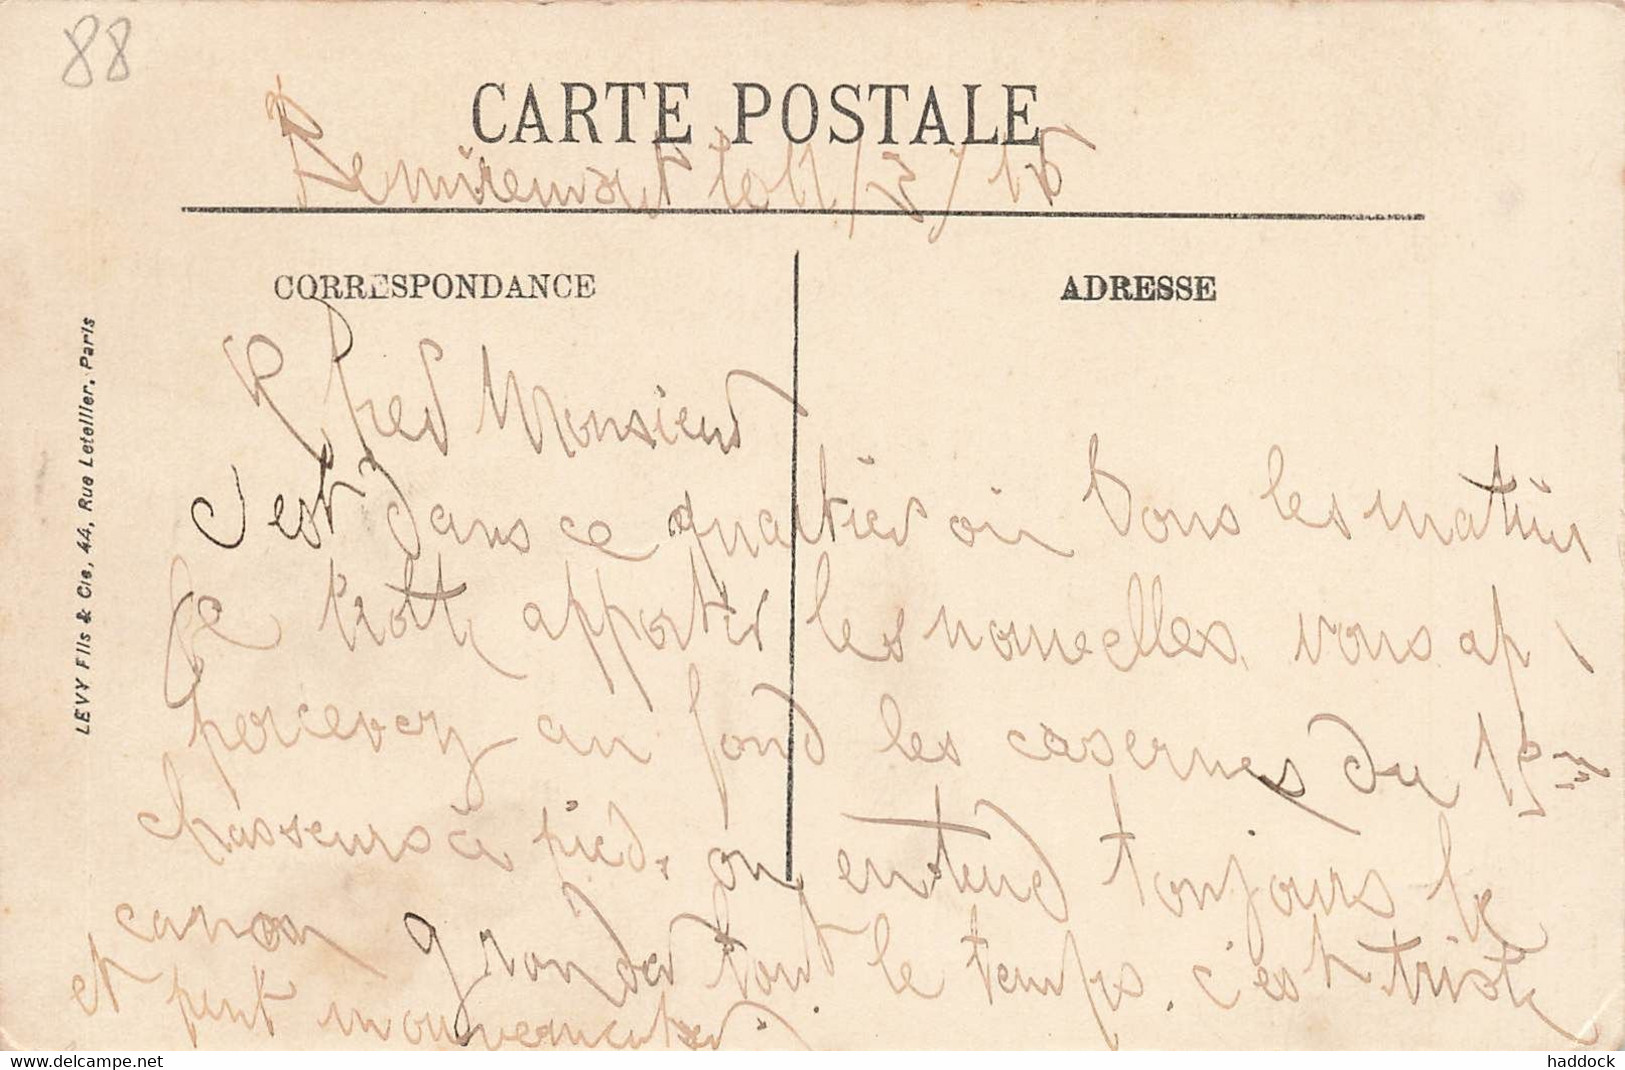 88
CARTE POSTALE
Remiremont le 11/3/15
CORRESPONDANCE
ADRESSE
LEVY Fils & Cie, 44, Rue Letellier, Paris
Cher Monsieur
c'est dans ce quartier où tous les matins
je trotte apporter les nouvelles. vous ap
percevez au fond les casernes du 15me
chasseurs à pied. on entend toujours le
canon gronder tout le temps. c'est triste
et peut mouvementer.
www.delcampe.net
haddock